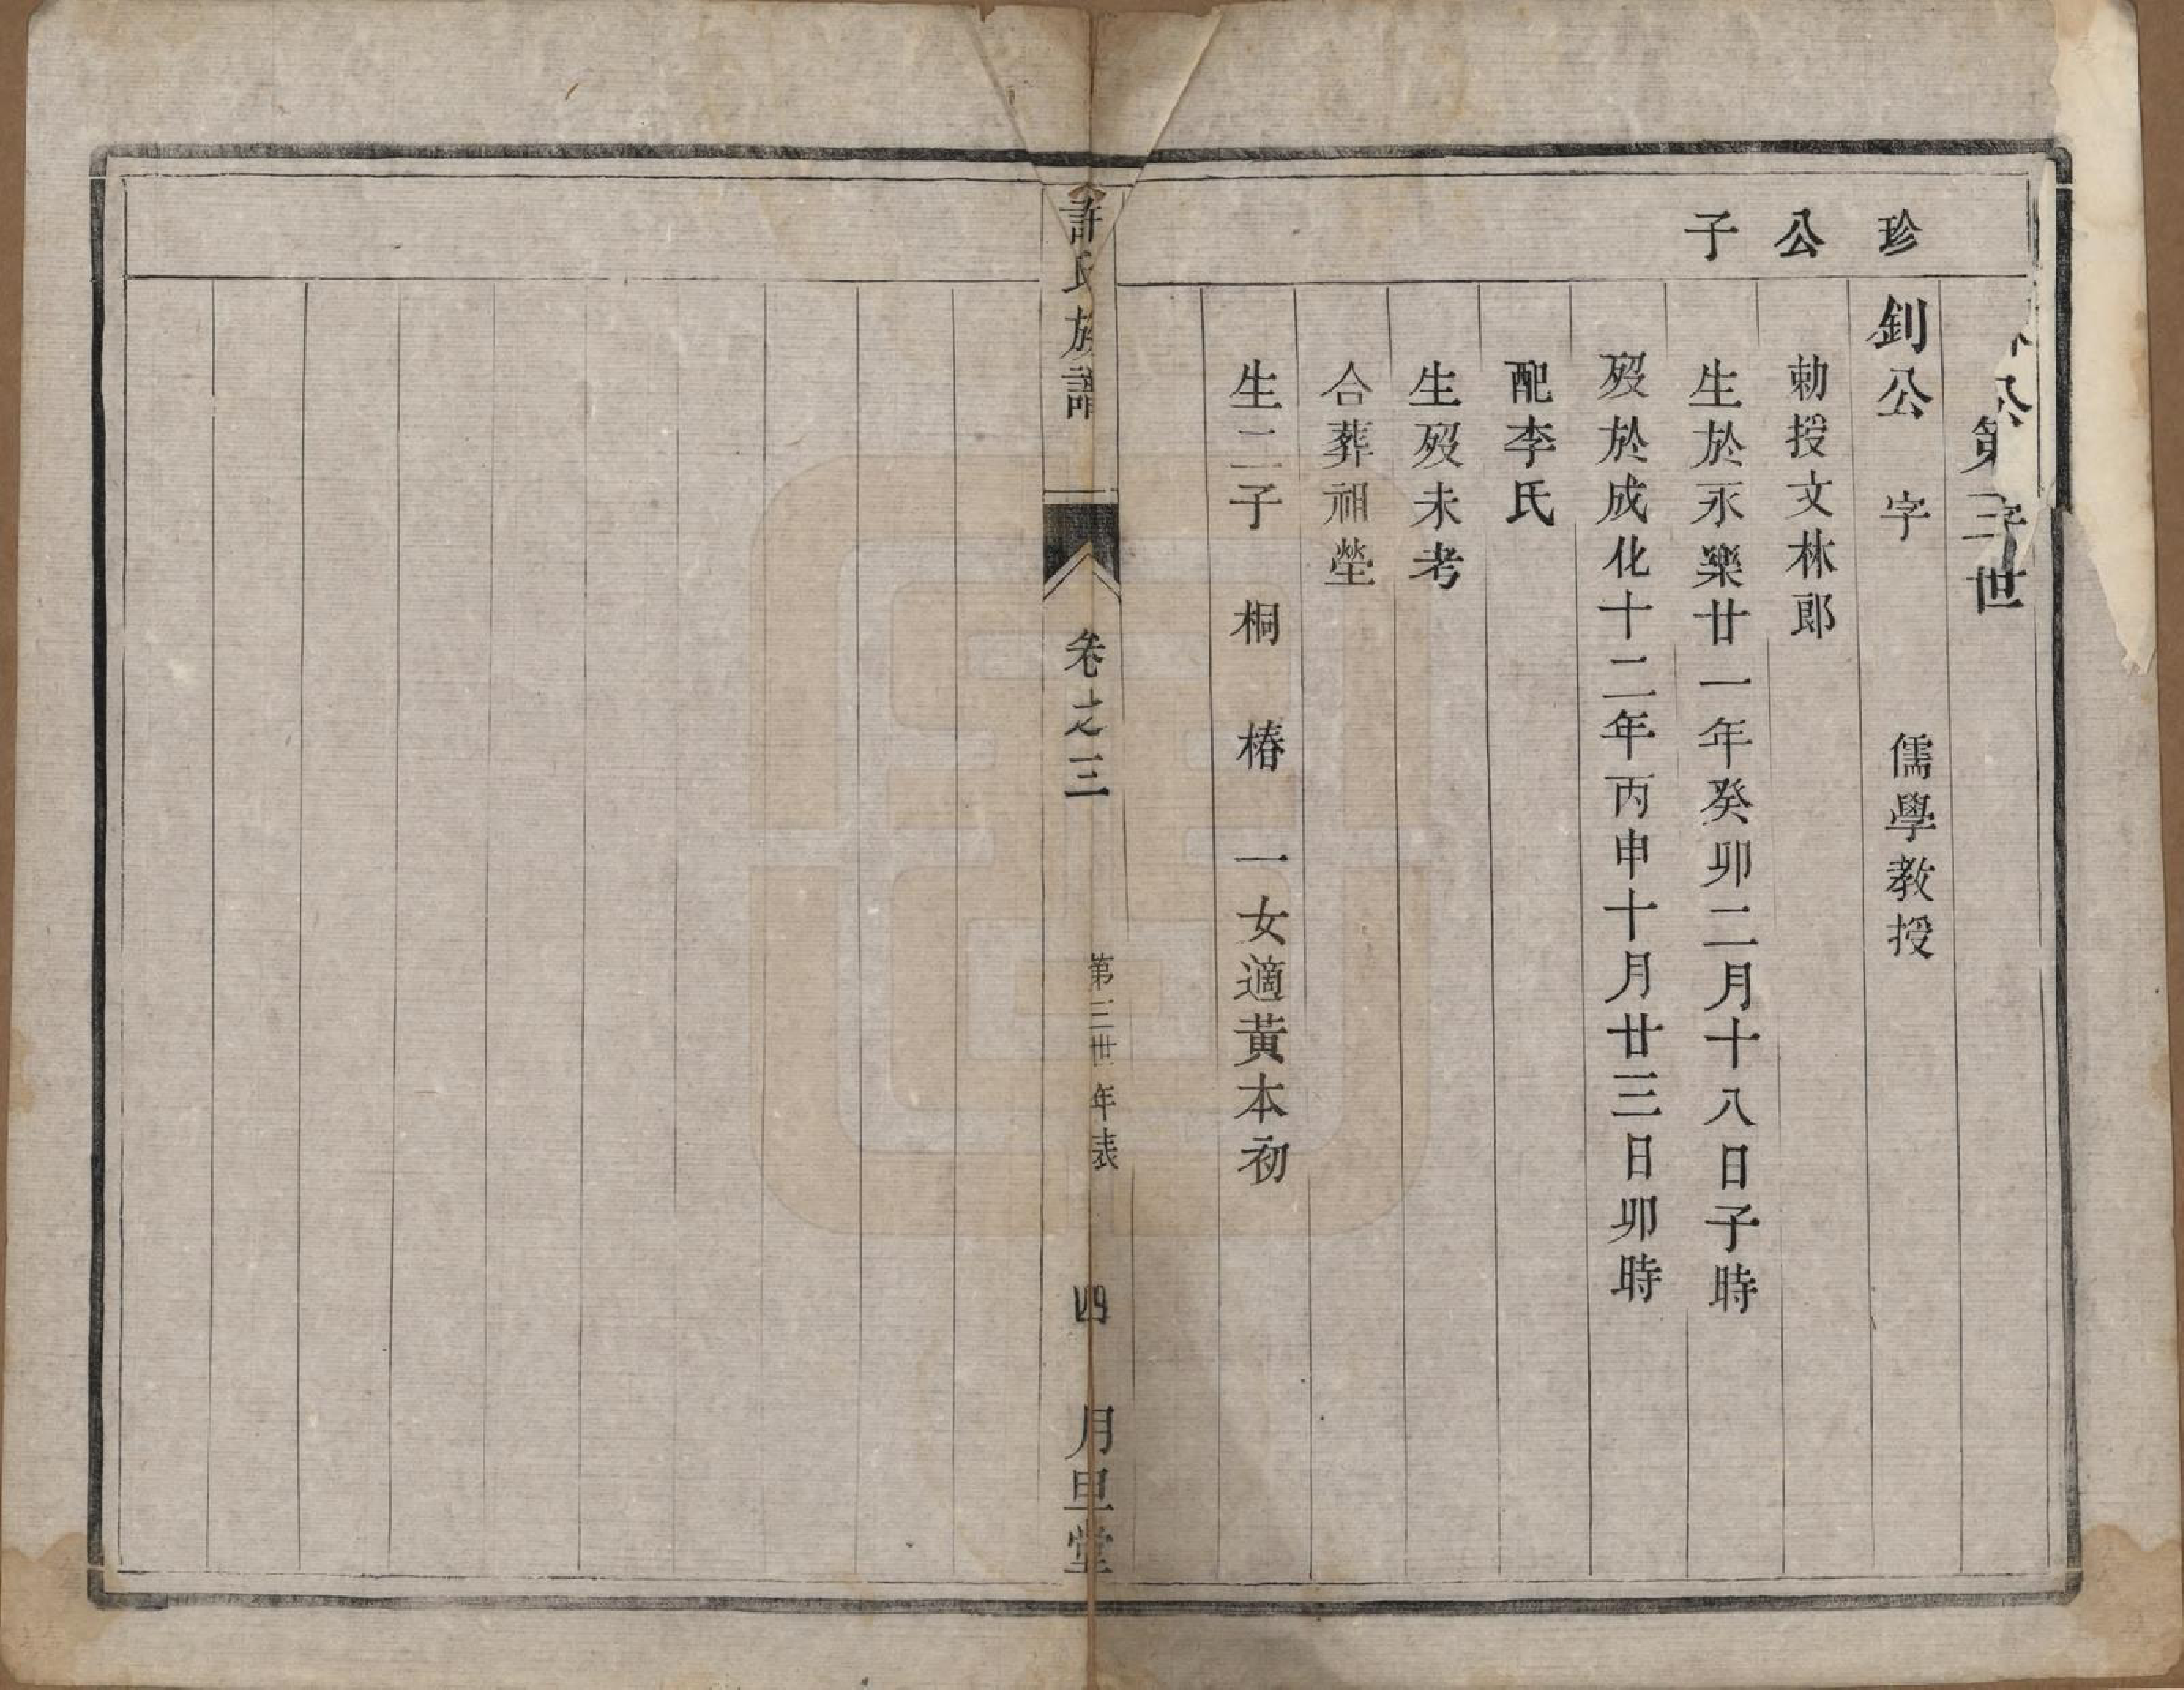 第三世
珍公子
釗公　字　　　儒學教授
勅授文林郎
生於永樂廿一年癸卯二月十八日子時
歿於成化十二年丙申十月廿三日卯時
配李氏
生歿未考
合葬祖塋
生二子　桐　椿　一女適黃本初
許氏族譜　卷之三　第三世年表　四　月旦堂